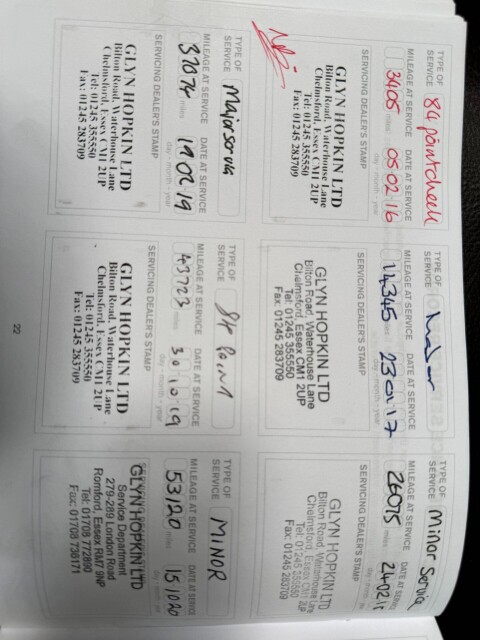 TYPE OF SERVICE 84 point check
MILEAGE AT SERVICE DATE AT SERVICE
3405 miles 05 02 16
day - month - year
SERVICING DEALER'S STAMP
GLYN HOPKIN LTD
Bilton Road, Waterhouse Lane
Chelmsford, Essex CM1 2UP
Tel: 01245 355550
Fax: 01245 283709
TYPE OF SERVICE
MILEAGE AT SERVICE DATE AT SERVICE
14345 miles 23 01 17
day - month - year
SERVICING DEALER'S STAMP
GLYN HOPKIN LTD
Bilton Road, Waterhouse Lane
Chelmsford, Essex CM1 2UP
Tel: 01245 355550
Fax: 01245 283709
TYPE OF SERVICE Minor Service
MILEAGE AT SERVICE DATE AT SERVICE
26075 miles 24 02
day - month
SERVICING DEALER'S STAMP
GLYN HOPKIN LTD
Bilton Road, Waterhouse Lane
Chelmsford, Essex CM1 2UP
Tel: 01245 355550
Fax: 01245 283709
TYPE OF SERVICE Major service
MILEAGE AT SERVICE DATE AT SERVICE
37074 miles 19 02 19
day - month - year
SERVICING DEALER'S STAMP
GLYN HOPKIN LTD
Bilton Road, Waterhouse Lane
Chelmsford, Essex CM1 2UP
Tel: 01245 355550
Fax: 01245 283709
TYPE OF SERVICE 84 Point
MILEAGE AT SERVICE DATE AT SERVICE
43723 miles 30 10 19
day - month - year
SERVICING DEALER'S STAMP
GLYN HOPKIN LTD
Bilton Road, Waterhouse Lane
Chelmsford, Essex CM1 2UP
Tel: 01245 355550
Fax: 01245 283709
TYPE OF SERVICE MINOR
MILEAGE AT SERVICE DATE AT SERVICE
53120 miles 15 10 20
SERVICING DEALER'S STAMP
GLYN HOPKIN LTD
Service Department
279-289 London Road
Romford, Essex RM7 9NP
Tel: 01708 772890
Fax: 01708 736171
22